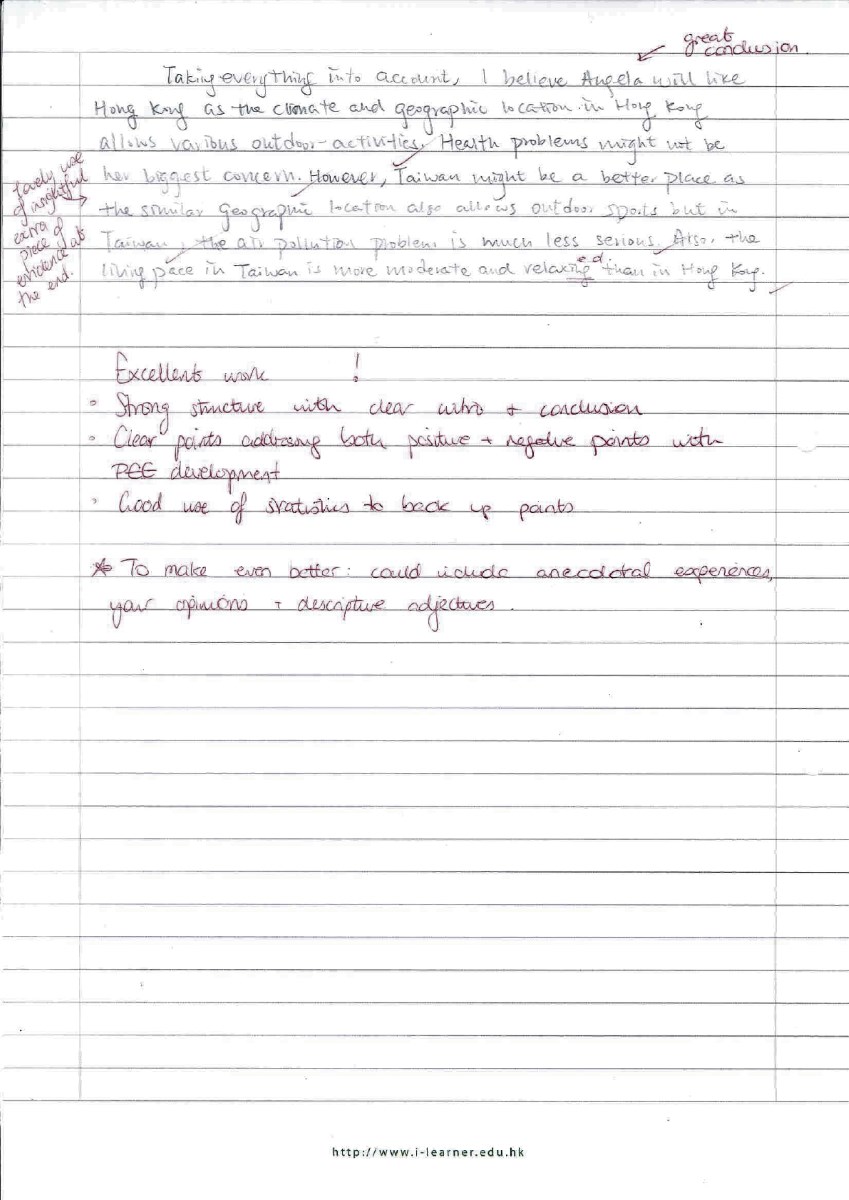 great
conclusion.
Taking everything into account, I believe Angela will like
Hong Kong as the climate and geographic location in Hong Kong
allows various outdoor activities. Health problems might not be
her biggest concern. However, Taiwan might be a better place as
the similar geographic location also allows outdoor sports but in
Taiwan, the air pollution problem is much less serious. Also, the
living pace in Taiwan is more moderate and relaxing than in Hong Kong.
ed
lovely use
of insightful
extra
piece of
evidence at
the end.
Excellent work !
• Strong structure with clear intro + conclusion
• Clear points addressing both positive + negative points with
PEE development
• Good use of statistics to back up points
* To make even better: could include anecdotal experiences,
your opinions + descriptive adjectives.
http://www.i-learner.edu.hk